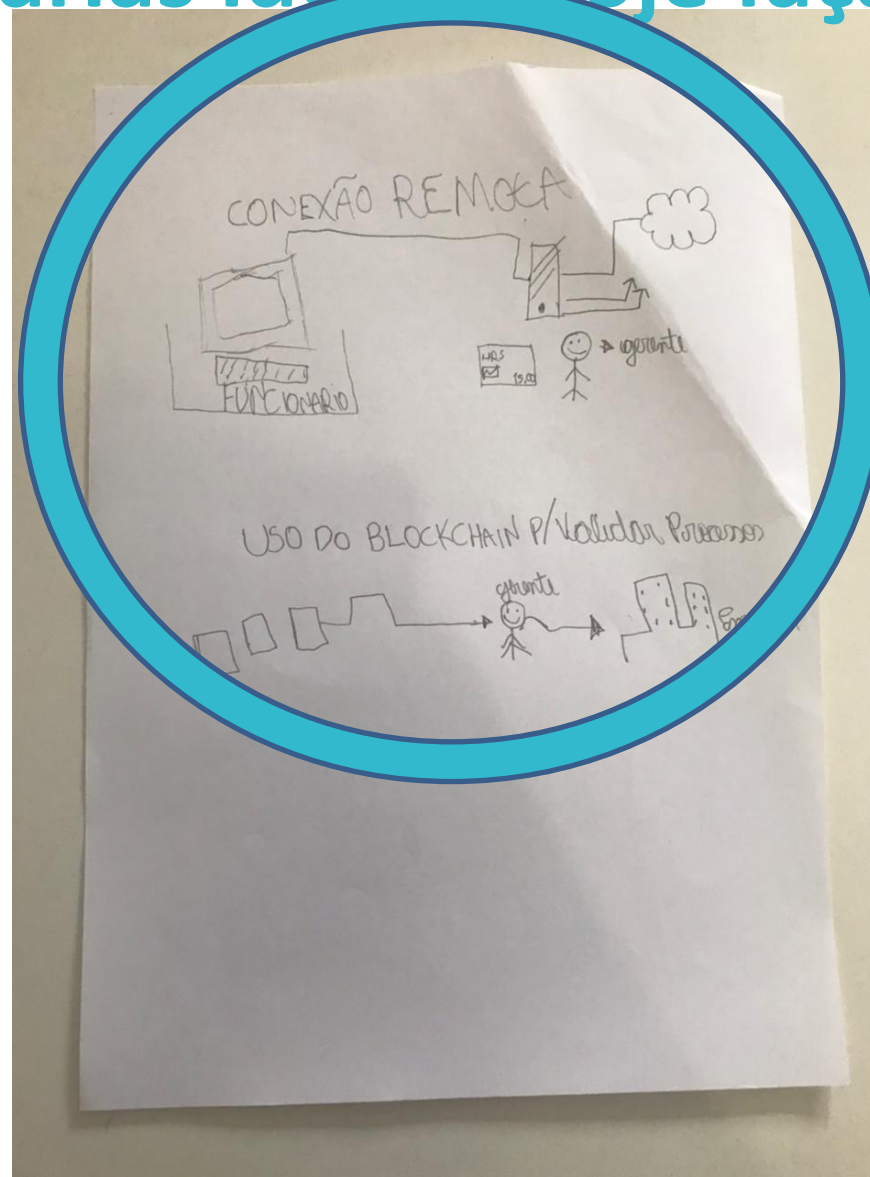 CONEXÃO REMOTA
FUNCIONARIO
HRS
15,00
gerente
USO DO BLOCKCHAIN P/ Validar Processos
gerente